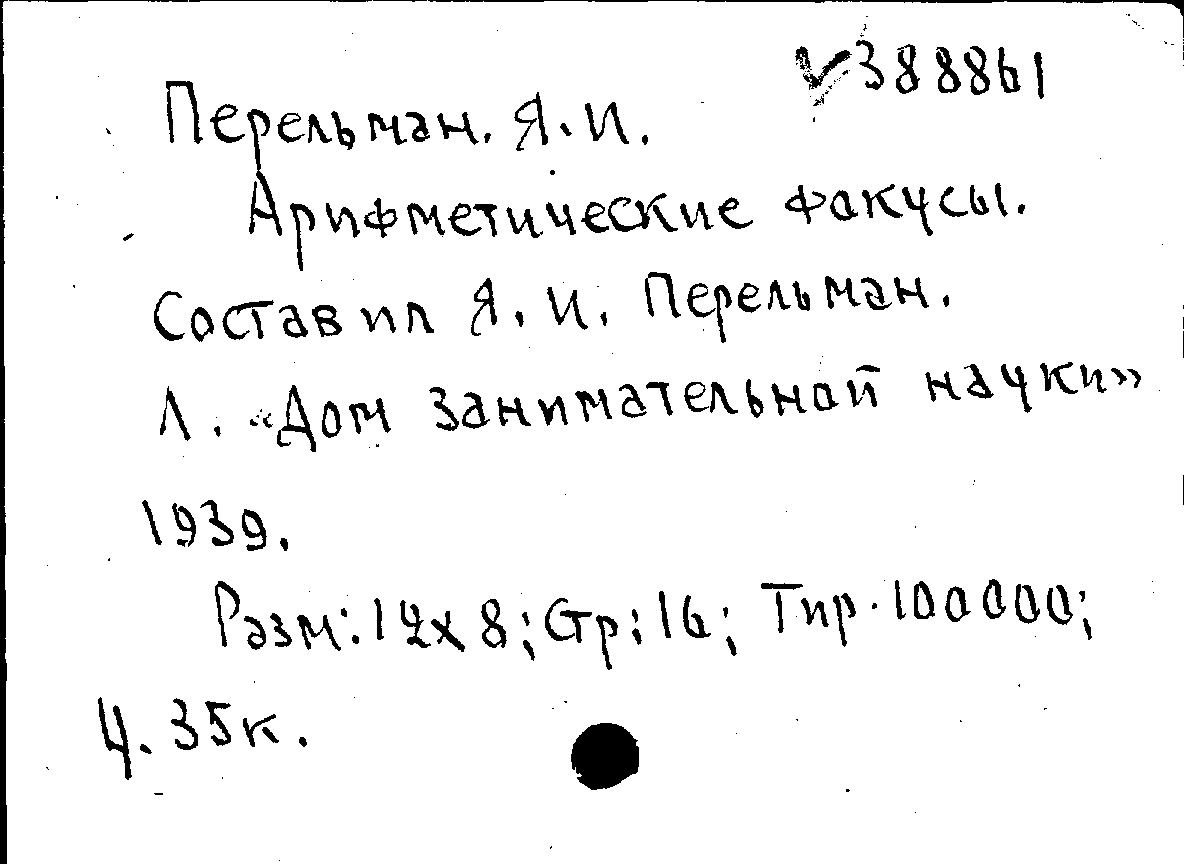 ✓388861
Перельман. Я. И.
Арифметические факусы.
Составил Я. И. Перельман.
Л. «Дом занимательной науки»
1939.
Разм: 12х8; Стр: 16; Тир. 100000;
Ц. 35к.